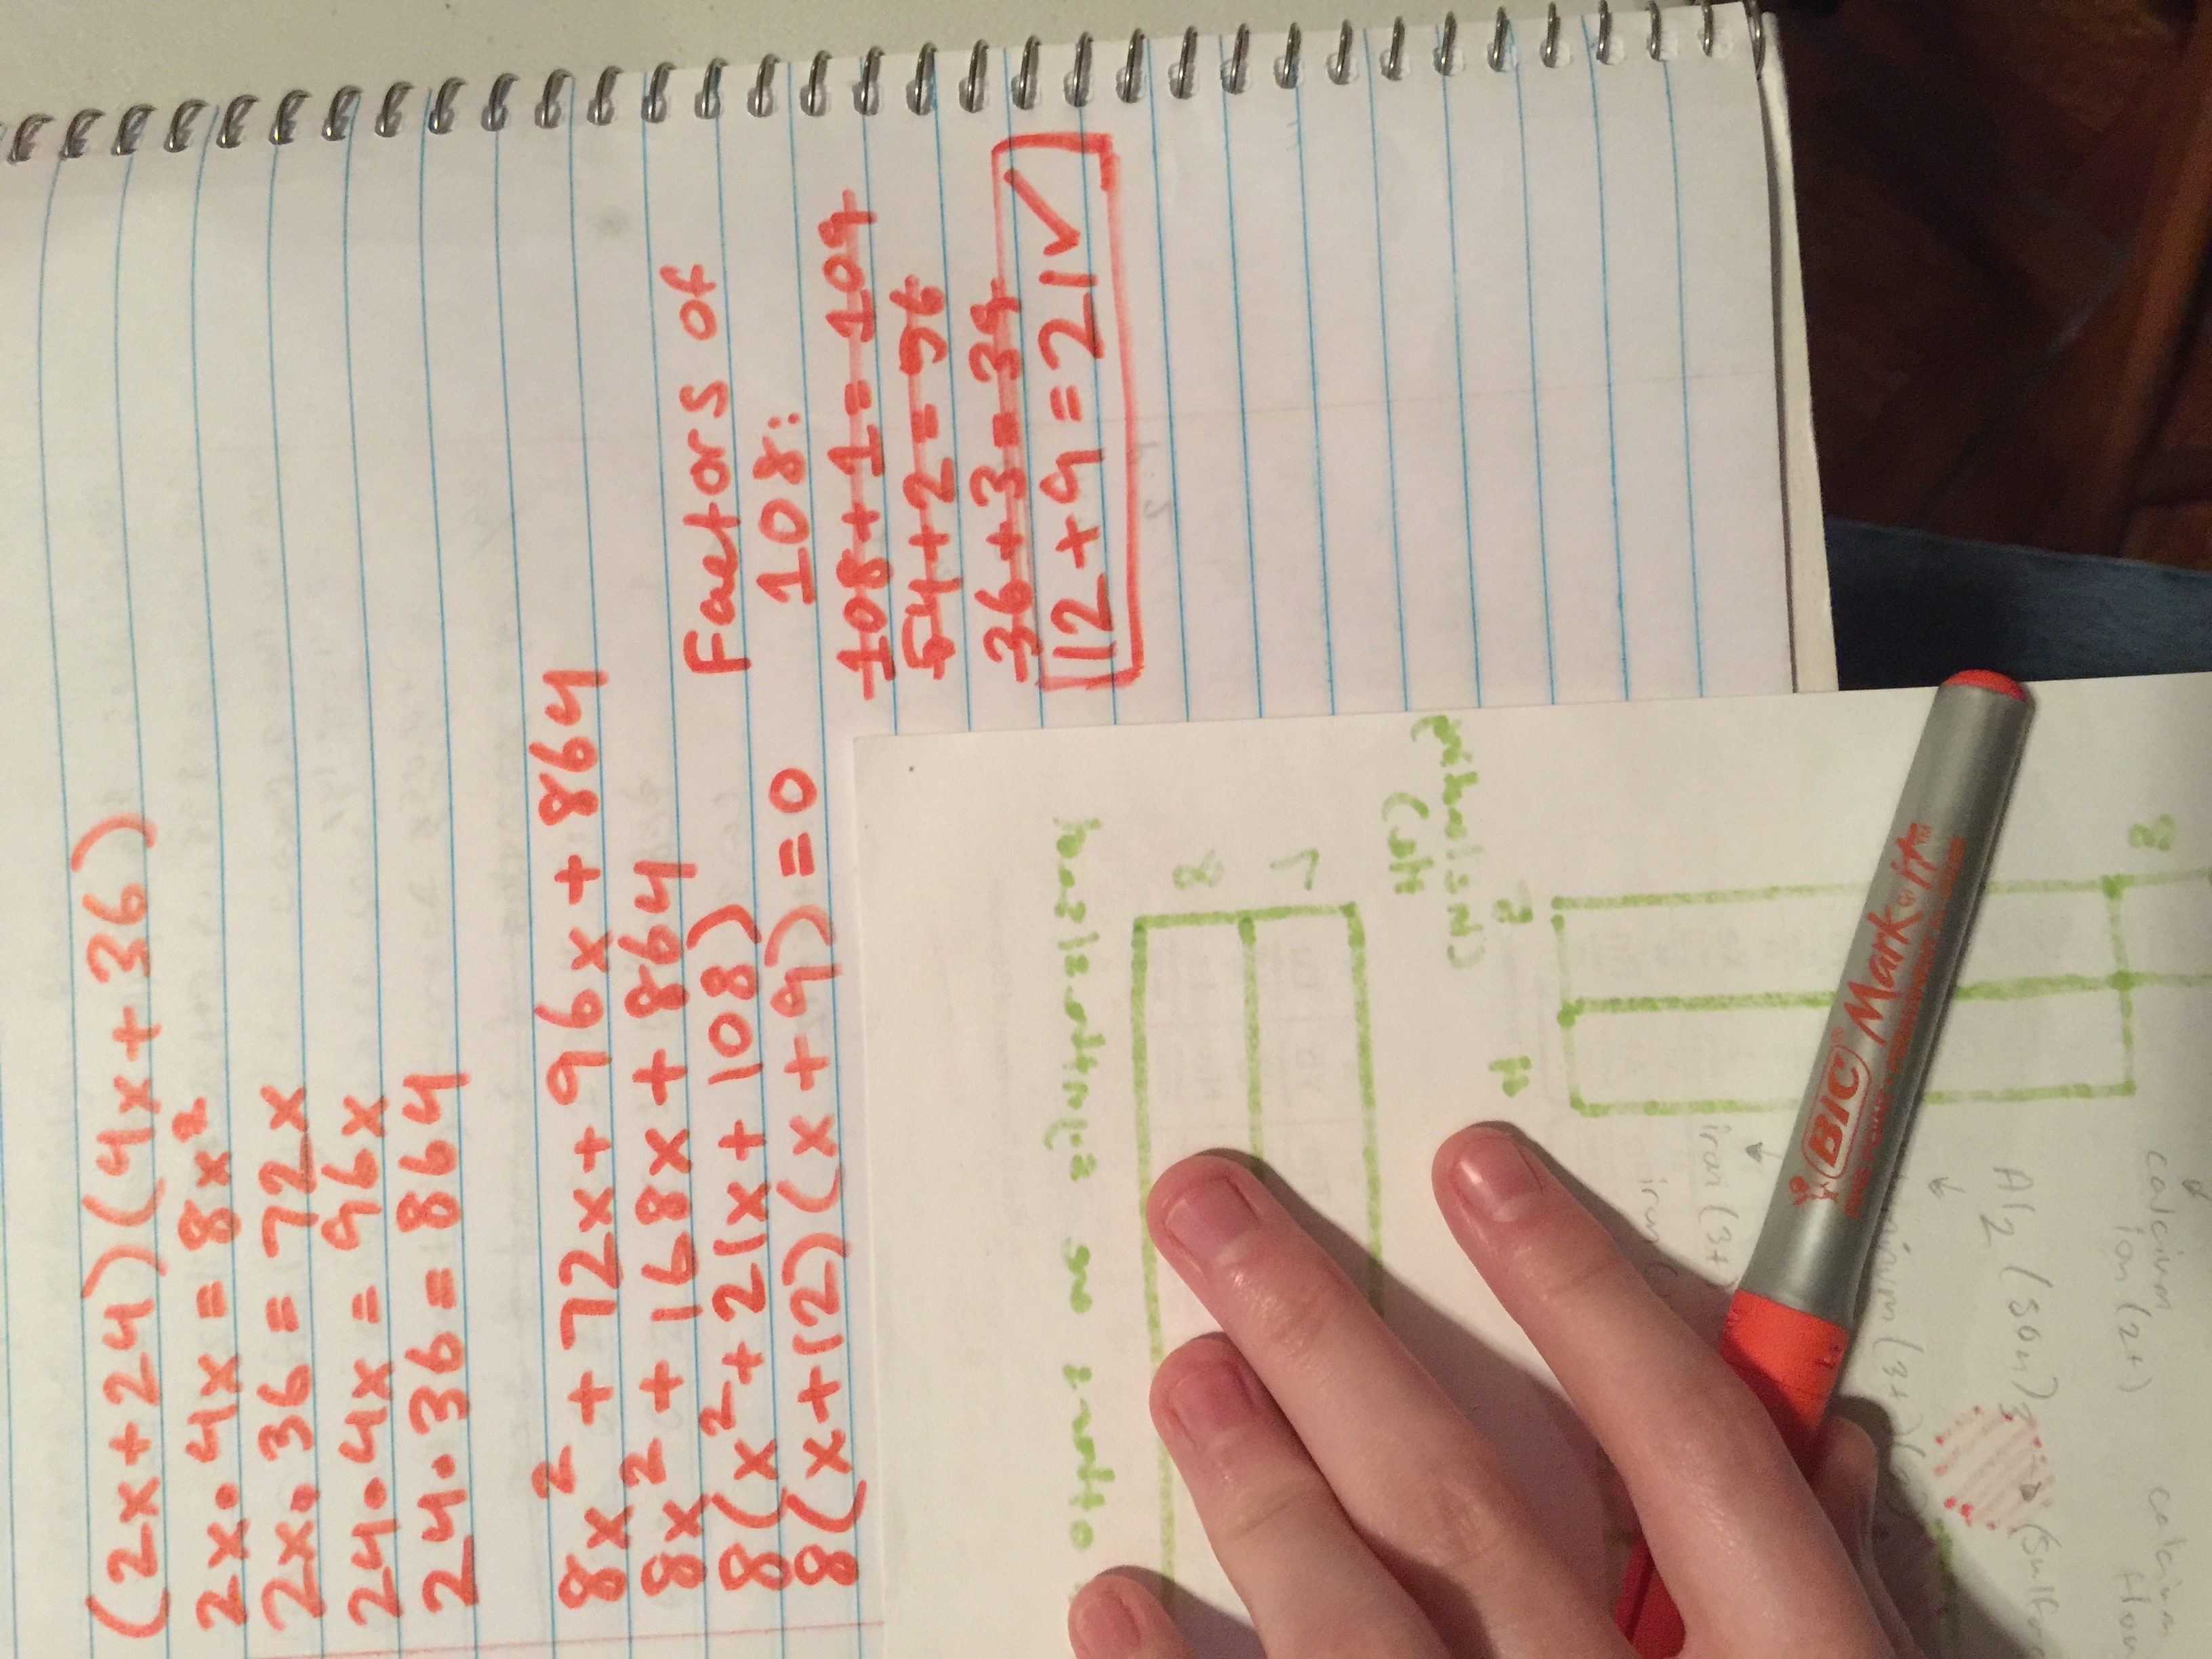 (2x+24)(4x+36)
2x·4x=8x²
2x·36=72x
24·4x=96x
24·36=864
8x²+72x+96x+864
8x²+168x+864
8(x²+21x+108)
8(x+12)(x+9)=0
Factors of
108:
108+1=109
54+2=56
36+3=39
12+9=21✓
BIC Mark-it™
8
7
8
calcium
ion (2+)
Al₂(SO₄)₃
iron (3+)
calcium